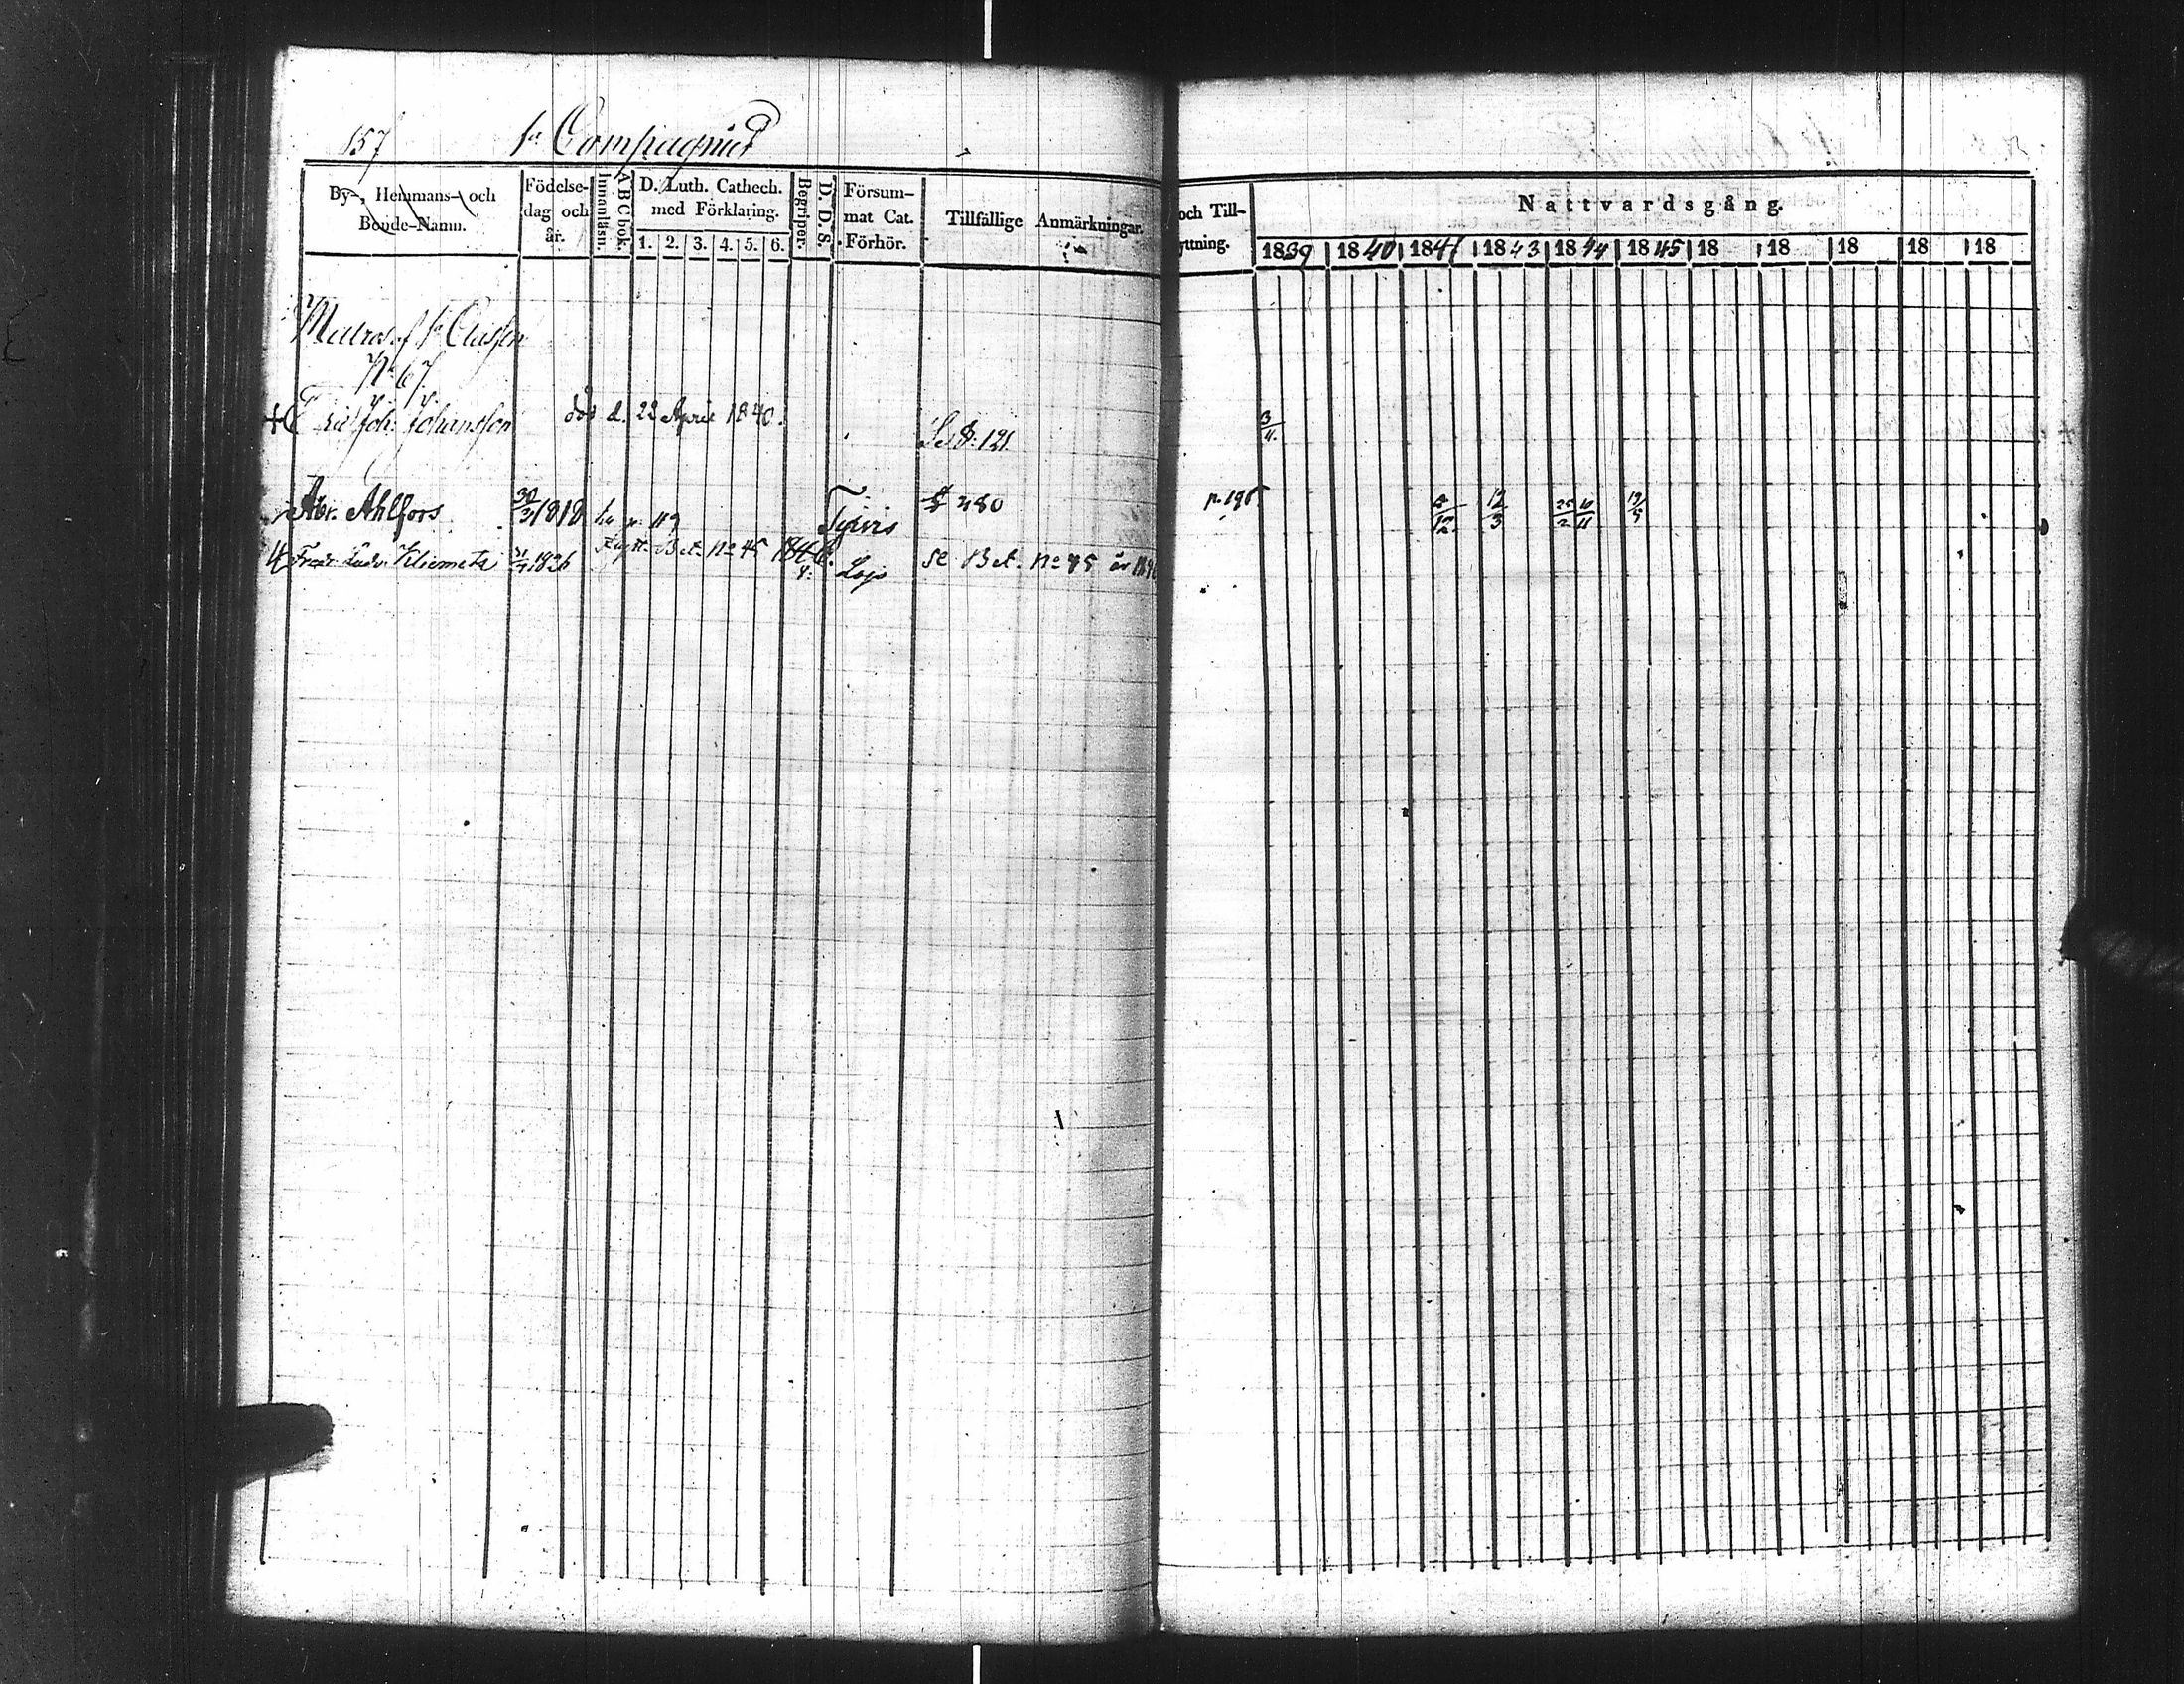 157 1sta Compagniet
By-, Hemmans- och Bonde-Namn.
Födelse-dag och år.
Innanläsn.
A B C bok.
D. Luth. Cathech. med Förklaring.
1. 2. 3. 4. 5. 6.
Begriper.
D. D. S.
Försum-mat Cat. Förhör.
Tillfällige Anmärkningar.
och Till-
yttning.
Nattvardsgång.
1839 1840 1841 1843 1844 1845 18 18 18 18 18
Matros af 1a Classen
No 67.
+ Eric Joh. Johansson död d. 22 April 1840. Se S. 121. 3/11
Abr. Ahlfors 30/3 1818 p. 119 Tyris 480 p. 196 12/3 25/2 10/11 19/5
Fredr. Ludv. Kliemets 1826 Bet. No 45 1846. Lojo se Bet. No 45 år 1846